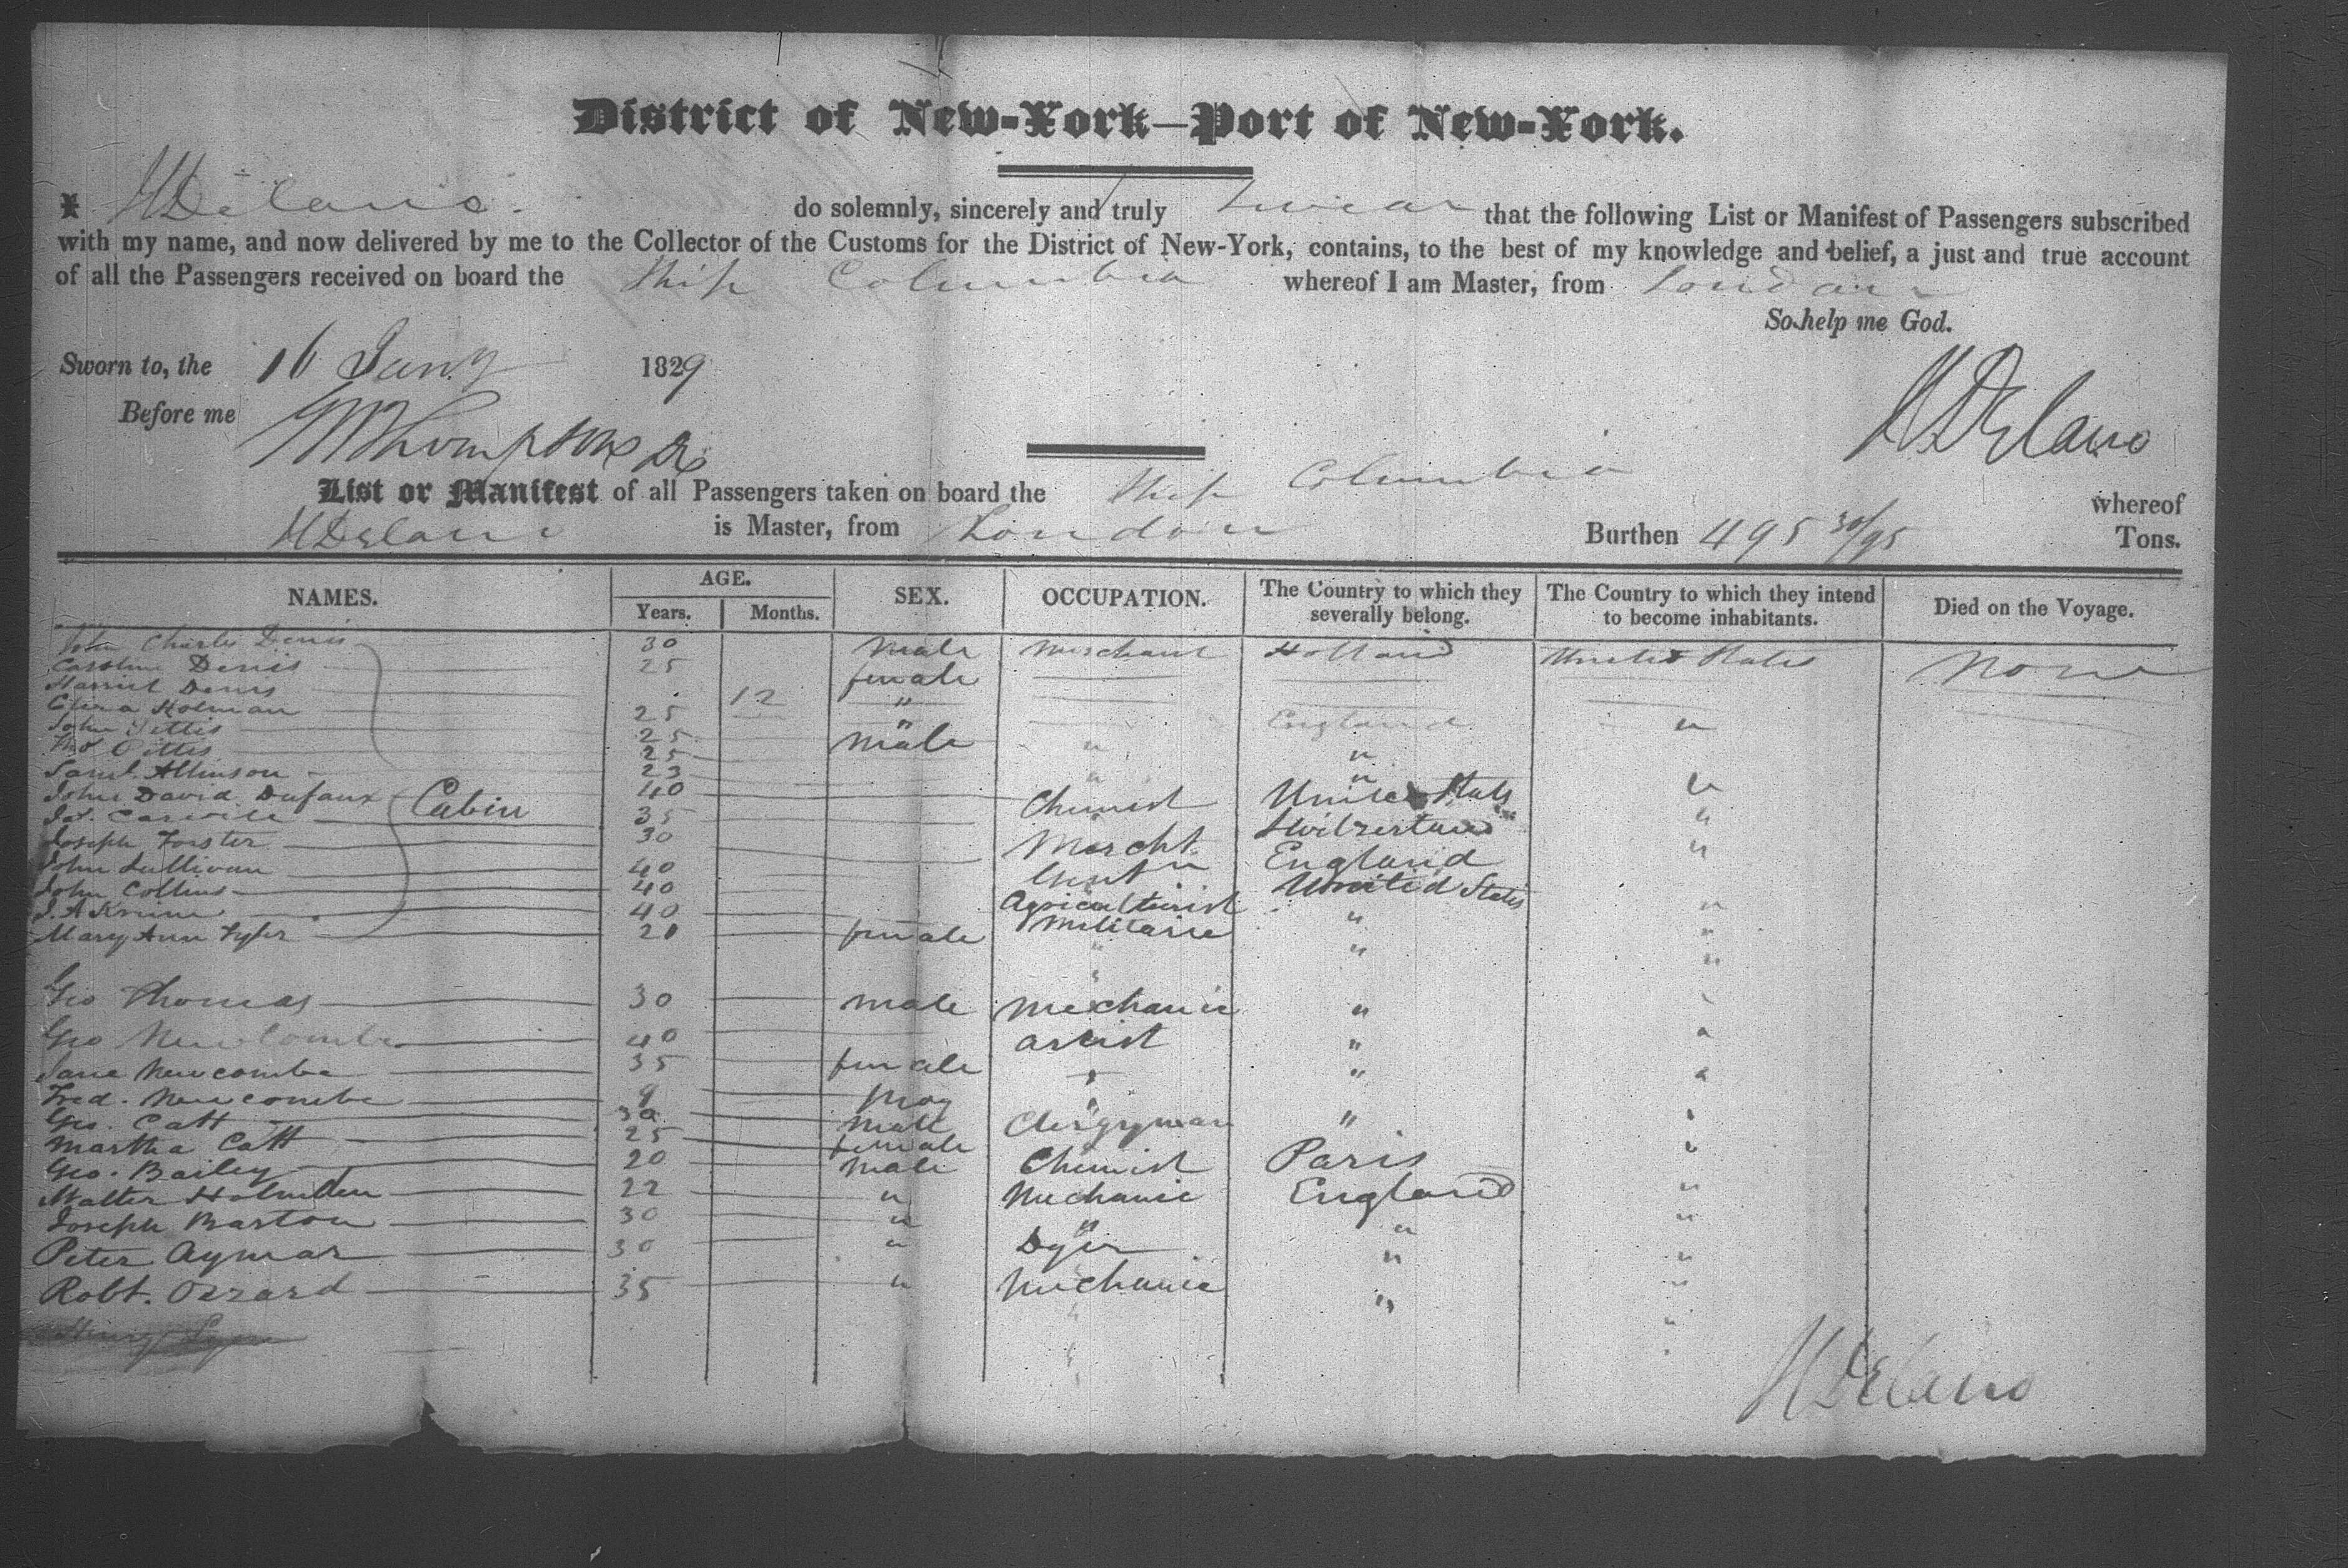 District of New-York—Port of New-York.
I H Delano do solemnly, sincerely and truly swear that the following List or Manifest of Passengers subscribed
with my name, and now delivered by me to the Collector of the Customs for the District of New-York, contains, to the best of my knowledge and belief, a just and true account
of all the Passengers received on board the Ship Columbia whereof I am Master, from London
So help me God.
Sworn to, the 16 Jany 1829
Before me Thompson
H Delano
List or Manifest of all Passengers taken on board the Ship Columbia whereof
H Delano is Master, from London Burthen 495 30/95 Tons.
NAMES. AGE. Years. Months. SEX. OCCUPATION. The Country to which they severally belong. The Country to which they intend to become inhabitants. Died on the Voyage.
John Charles Denis 30 Male Merchant Holland United States None
Caroline Denis 25 female
Harriet Denis 12 "
Holman 25 " England "
John Pittis 25 Male " "
Pittis 25
Saml. Atkinson 23 " "
John David Dufaux Cabin 40 Chemist United States "
35 Switzerland "
Joseph Forster 30 Mercht England "
John Sullivan 40 Gent United States
John Collins 40 Agriculturist "
J. A 40 "
Mary Ann Tyler 21 female " "
Geo Thomas 30 Male Mechanic "
Geo Newcombe 40 artist " "
Jane Newcombe 35 female " "
Fred. Newcombe 9 "
Geo. Catt Male Clergyman " "
Martha Catt 25 female
Geo. Bailey 20 Male Chemist Paris "
Walter Holmden 22 " Mechanic England "
Joseph Barton 30 " " " "
Peter Aymar 30 " Dyer " "
Robt. Ozzard 35 " Mechanic " "
Henry
H Delano